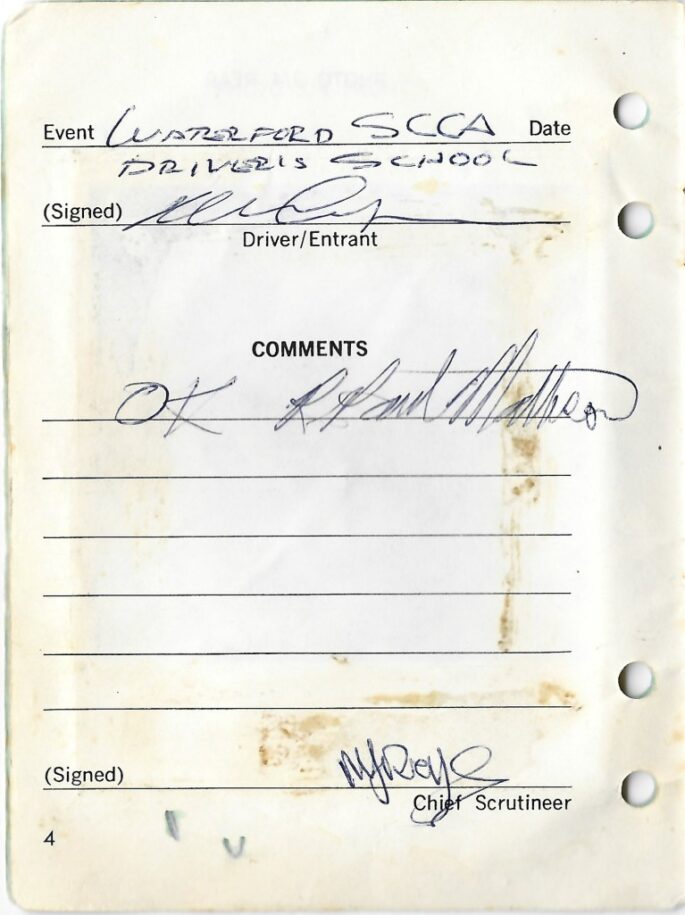 Event WATERFORD SCCA Date
DRIVER'S SCHOOL
(Signed)
Driver/Entrant
COMMENTS
OK
(Signed)
Chief Scrutineer
4